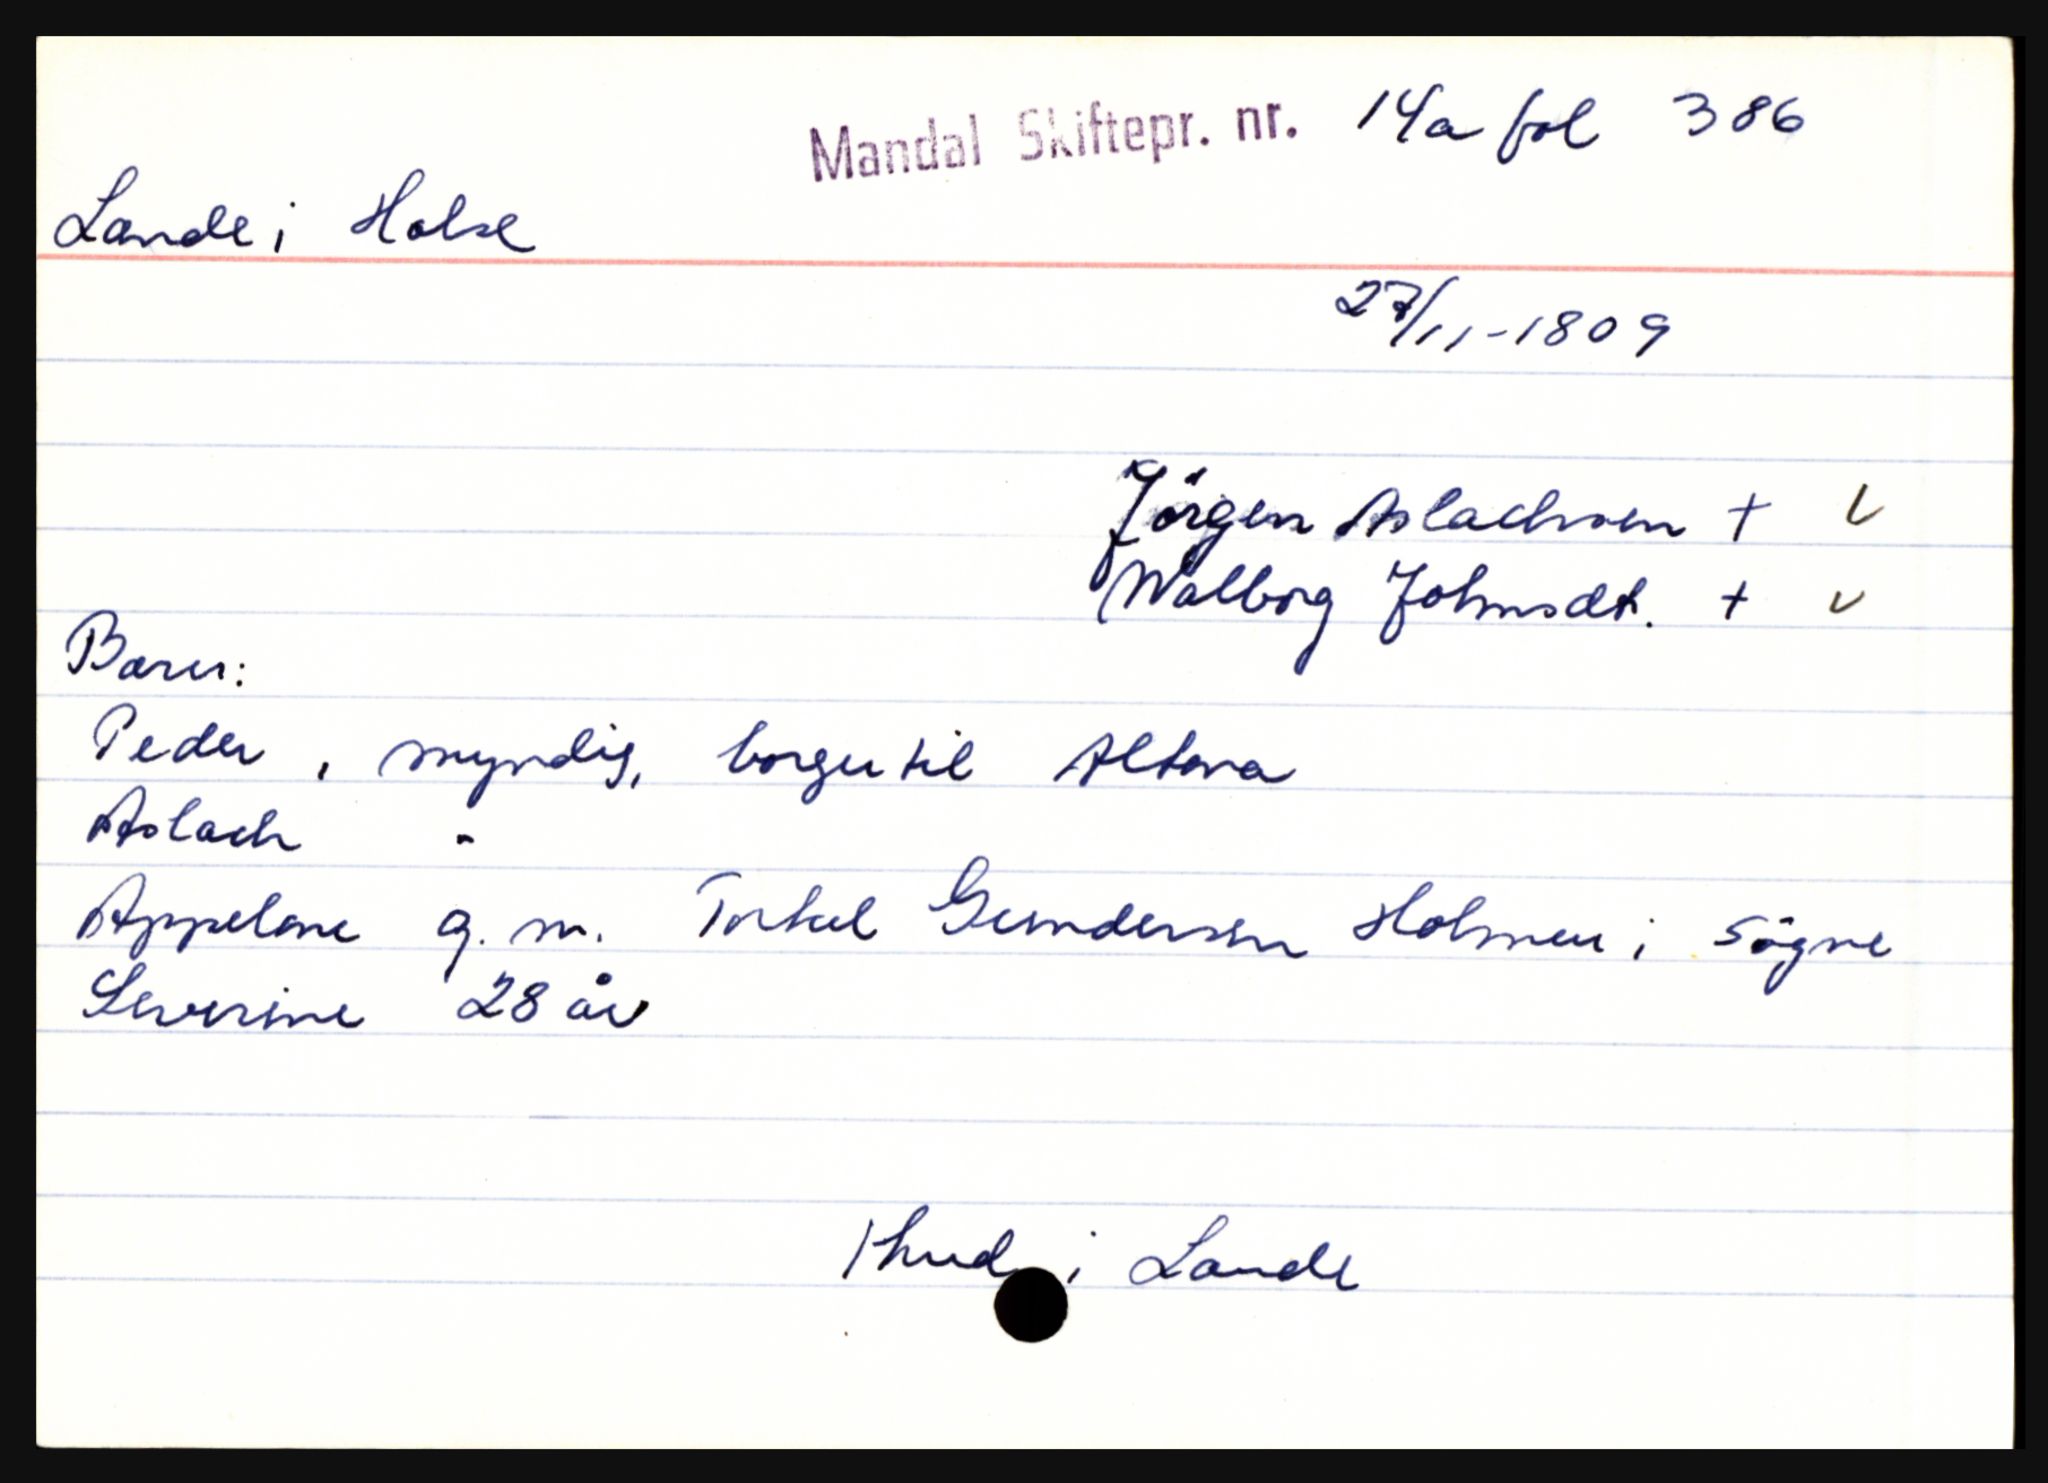 Mandal Skiftepr. nr. 14a fol 386
Lande i Halse
27/11-1809
Jörgen Aslachsen + v
Walborg Johnsdt. + v
Barn:
Peder, myndig, borger til Altona
Aslach -
Appelone g. m. Torkel Gundersen Holmen i Sögne
Severine 28 år
1 hud i Lande